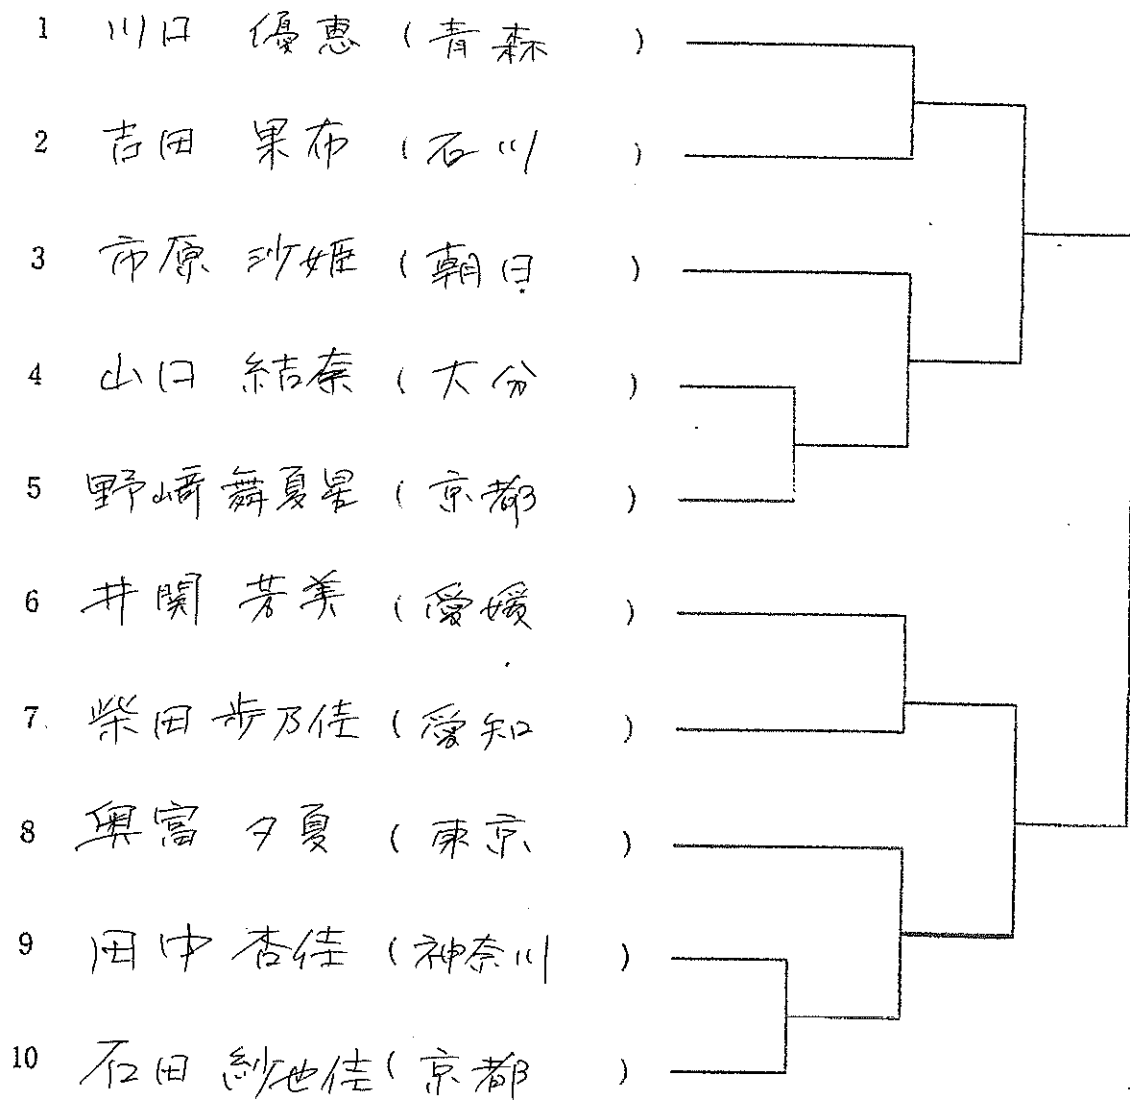 1 川口 優恵 (青森)
2 吉田 果布 (石川)
3 市原 沙姫 (朝日)
4 山口 結奈 (大分)
5 野﨑 舞夏星 (京都)
6 井関 芳美 (愛媛)
7 柴田 歩乃佳 (愛知)
8 奥富 夕夏 (東京)
9 田中 杏佳 (神奈川)
10 石田 紗也佳 (京都)